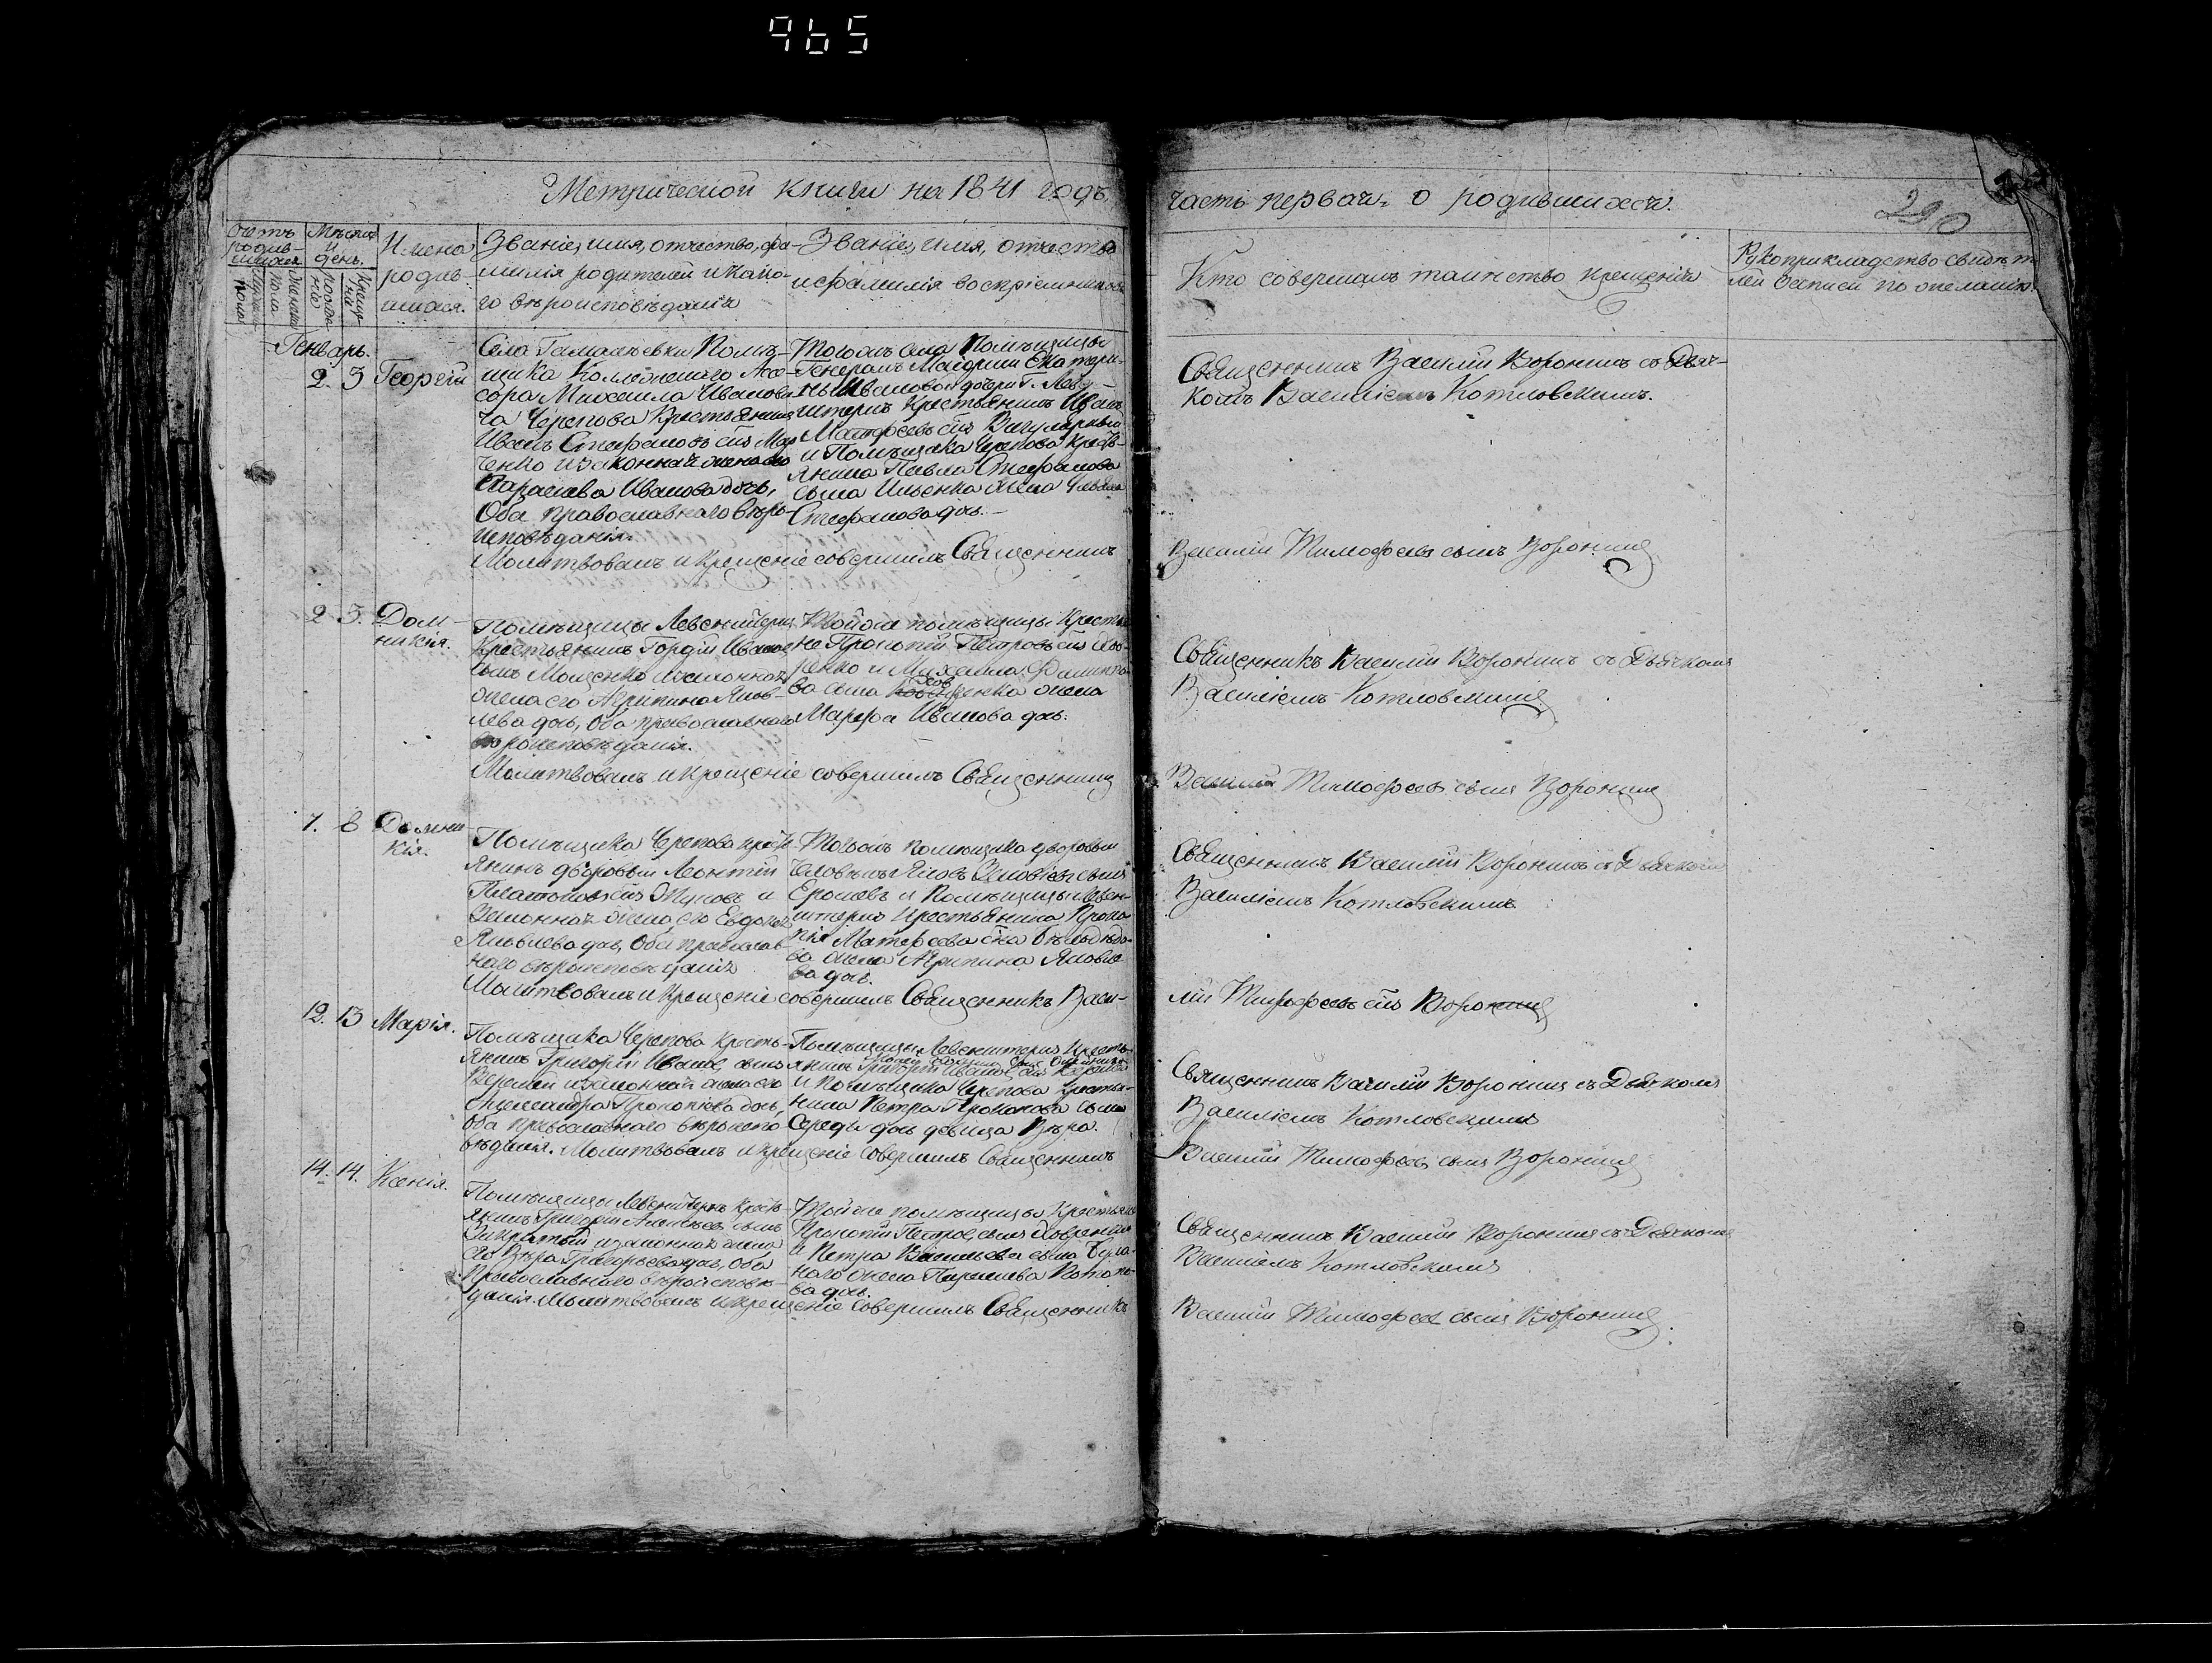 965
Метрической книги на 1841 годъ,
часть первая о родившихся.
290
Счотъ родив-шихся
Мѣсяцъ и день.
Имена родив-шихся.
Званіе, имя, отчество, фа-
милія родителей и како-
го вѣроисповѣданія
Званіе, имя, отчество
и фамилія воспріемниковъ
Кто совершалъ таинство крещенія
Рукоприкладство свидѣте
лей записи по желанію.
Генварь.
2. 3 Георгій
Села Гамалѣевки Помѣ-
щика Коллежскаго Ассе-
сора Михаила Иванови
ча Черепова Крестьянинъ
Иванъ Стефановъ снъ Мар
ченко и законная жена его
Параскева Иванова дочь,
Оба православнаго вѣро-
исповѣданія.
Молитвовалъ и крещеніе совершилъ Священникъ
Тогожъ села Помѣщицы
Генералъ Маіорши Екатери-
ны Ивановой дочери Г. Леве-
нштернъ крестьянинъ Иванъ
Матфеевъ снъ
и Помѣщика Черепова кресть-
янина Павла Стефанова
сына Ильенка жена Ульяна
Стефанова дочь.
Священникъ Василій Воронинъ съ Дьяч-
комъ Василіемъ Котловскимъ.
Василій Тимофеевъ сынъ Воронинъ
2 3. Дом-
никія.
Помѣщицы Левенштернъ
Крестьянинъ Гордій Ивановъ
сынъ Мощенко и законная
жена его Агрипина Яков-
лева дочь, Оба православнаго
вѣроисповѣданія.
Молитвовалъ и крещеніе совершилъ Священникъ
Тойже помѣщицы Крестья
не Прокопій Петровъ снъ
и Михаила
ва сына жена
Марфа Иванова дочь.
Священникъ Василій Воронинъ съ Дьячкомъ
Василіемъ Котловскимъ
Василій Тимофеевъ сынъ Воронинъ
7. 8 Домни
кія.
Помѣщика Черепова кресть
янинъ дворовый Леонтій
Платоновъ снъ Жуковъ и
Законная жена его Евдокія
Яковлева дочь, Оба православ-
наго вѣроисповѣданія
Молитвовалъ и крещеніе совершилъ Священникъ Васи-
Тогожъ помѣщика дворовый
человѣкъ Яковъ сынъ
и Помѣщицы Левен-
штернъ Крестьянина Проко-
пія Матфеева сна
ва жена Агрипина Яковле
ва дочь.
Священникъ Василій Воронинъ съ Дьячкомъ
Василіемъ Котловскимъ
лій Тимофеевъ снъ Воронинъ
12. 13 Марія.
Помѣщика Черепова кресть-
янинъ Григорій Ивановъ сынъ
Веремій и законная жена его
Александра Прокопіева дочь,
оба православнаго вѣроиспо
вѣданія. Молитвовалъ и крещеніе совершилъ Священникъ
Помѣщицы Левенштернъ Кресть-
янинъ
и помѣщика Черепова кресть-
янина Петра сына
Середы дочь девица Вѣра.
Священникъ Василій Воронинъ съ Дьячкомъ
Василіемъ Котловскимъ
Василій Тимофеевъ сынъ Воронинъ
14. 14. Ксенія.
Помѣщицы Левенштернъ Кресть-
янинъ Григорій Алексѣевъ сынъ
и законная жена
его Вѣра Григорьева дочь, Оба
православнаго вѣроисповѣ-
данія. Молитвовалъ и крещеніе совершилъ Священникъ
Тойже помѣщицы Крестьяне
Прокопій Петровъ сынъ
и Петра Васильева сына
жена Параскева
ва дочь.
Священникъ Василій Воронинъ съ Дьячкомъ
Василіемъ Котловскимъ
Василій Тимофеевъ сынъ Воронинъ